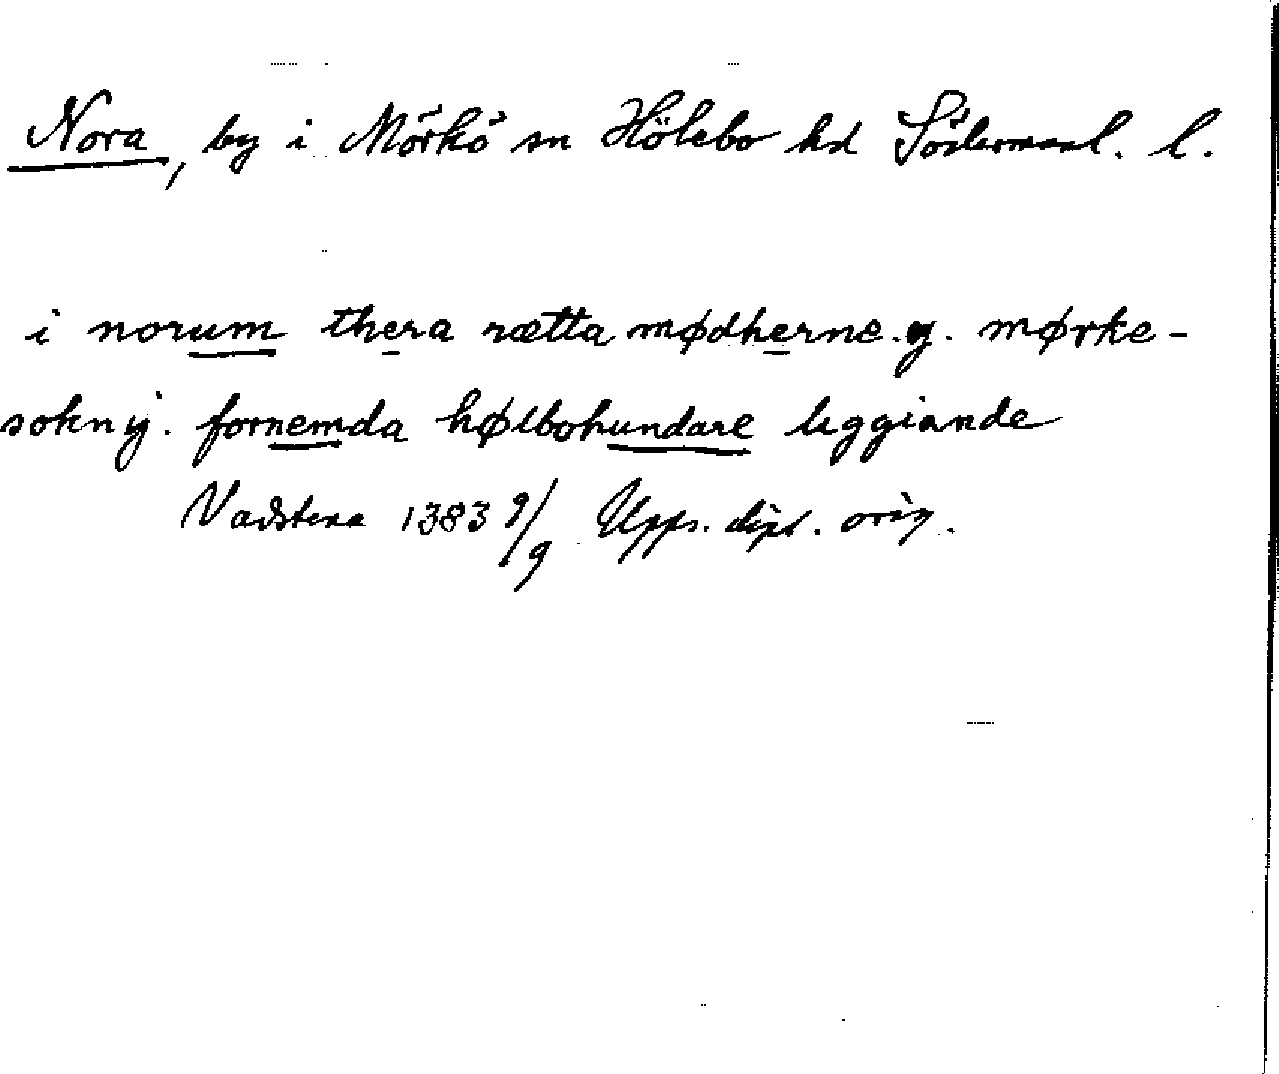 Nora, by i Mörkö sn Hölebo hd Södermanl. l.
i norum thera rætta mødherne .y. mørke-
sokn ÿ. fornemda hølbohundare leggiande
Vadstena 1383 9/9 Upps. dipl. orig.